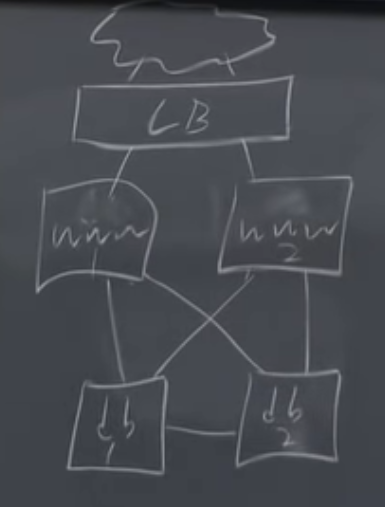 LB
www
1
www
2
db
1
db
2